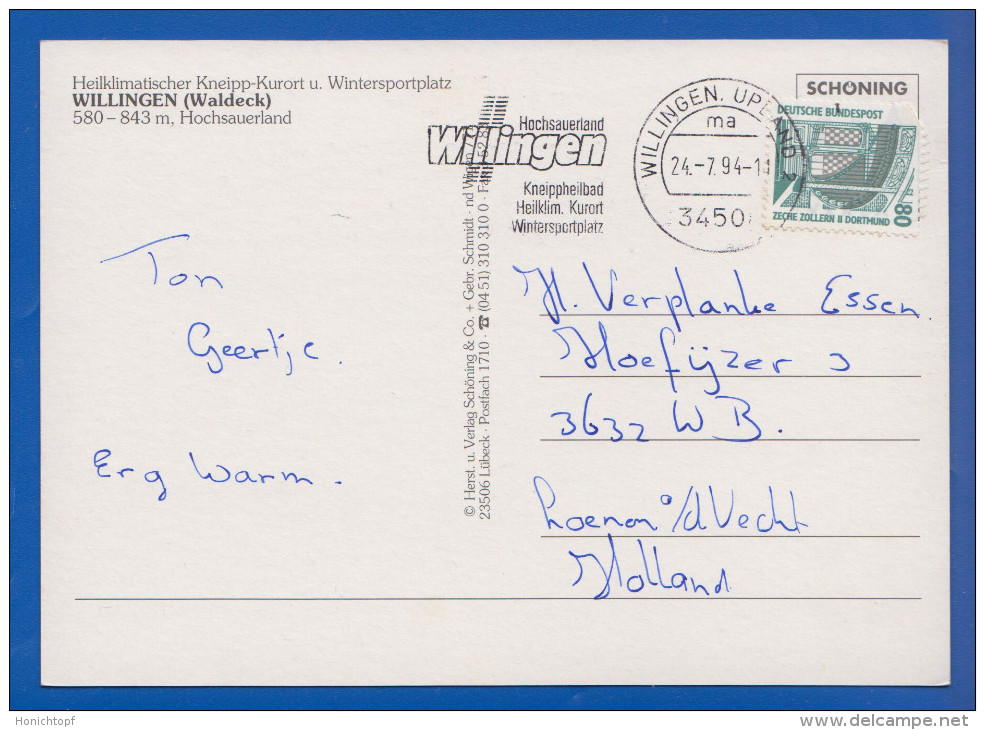 Heilklimatischer Kneipp-Kurort u. Wintersportplatz
WILLINGEN (Waldeck)
580 – 843 m, Hochsauerland
Hochsauerland
Willingen
Kneippheilbad
Heilklim. Kurort
Wintersportplatz
WILLINGEN, UPLAND 2
ma
24.-7.94-1
3450
SCHÖNING
DEUTSCHE BUNDESPOST
80
ZECHE ZOLLERN II DORTMUND
Ton
Geertje.
Erg Warm.
© Herst. u. Verlag Schöning & Co. + Gebr. Schmidt
23506 Lübeck · Postfach 1710 · ☎ (04 51) 310 310 0 ·
H. Verplanke Essen.
Hoefijzer 3
3632 WB.
Loenen a/d Vecht
Holland
Honichtopf
delcampe.net